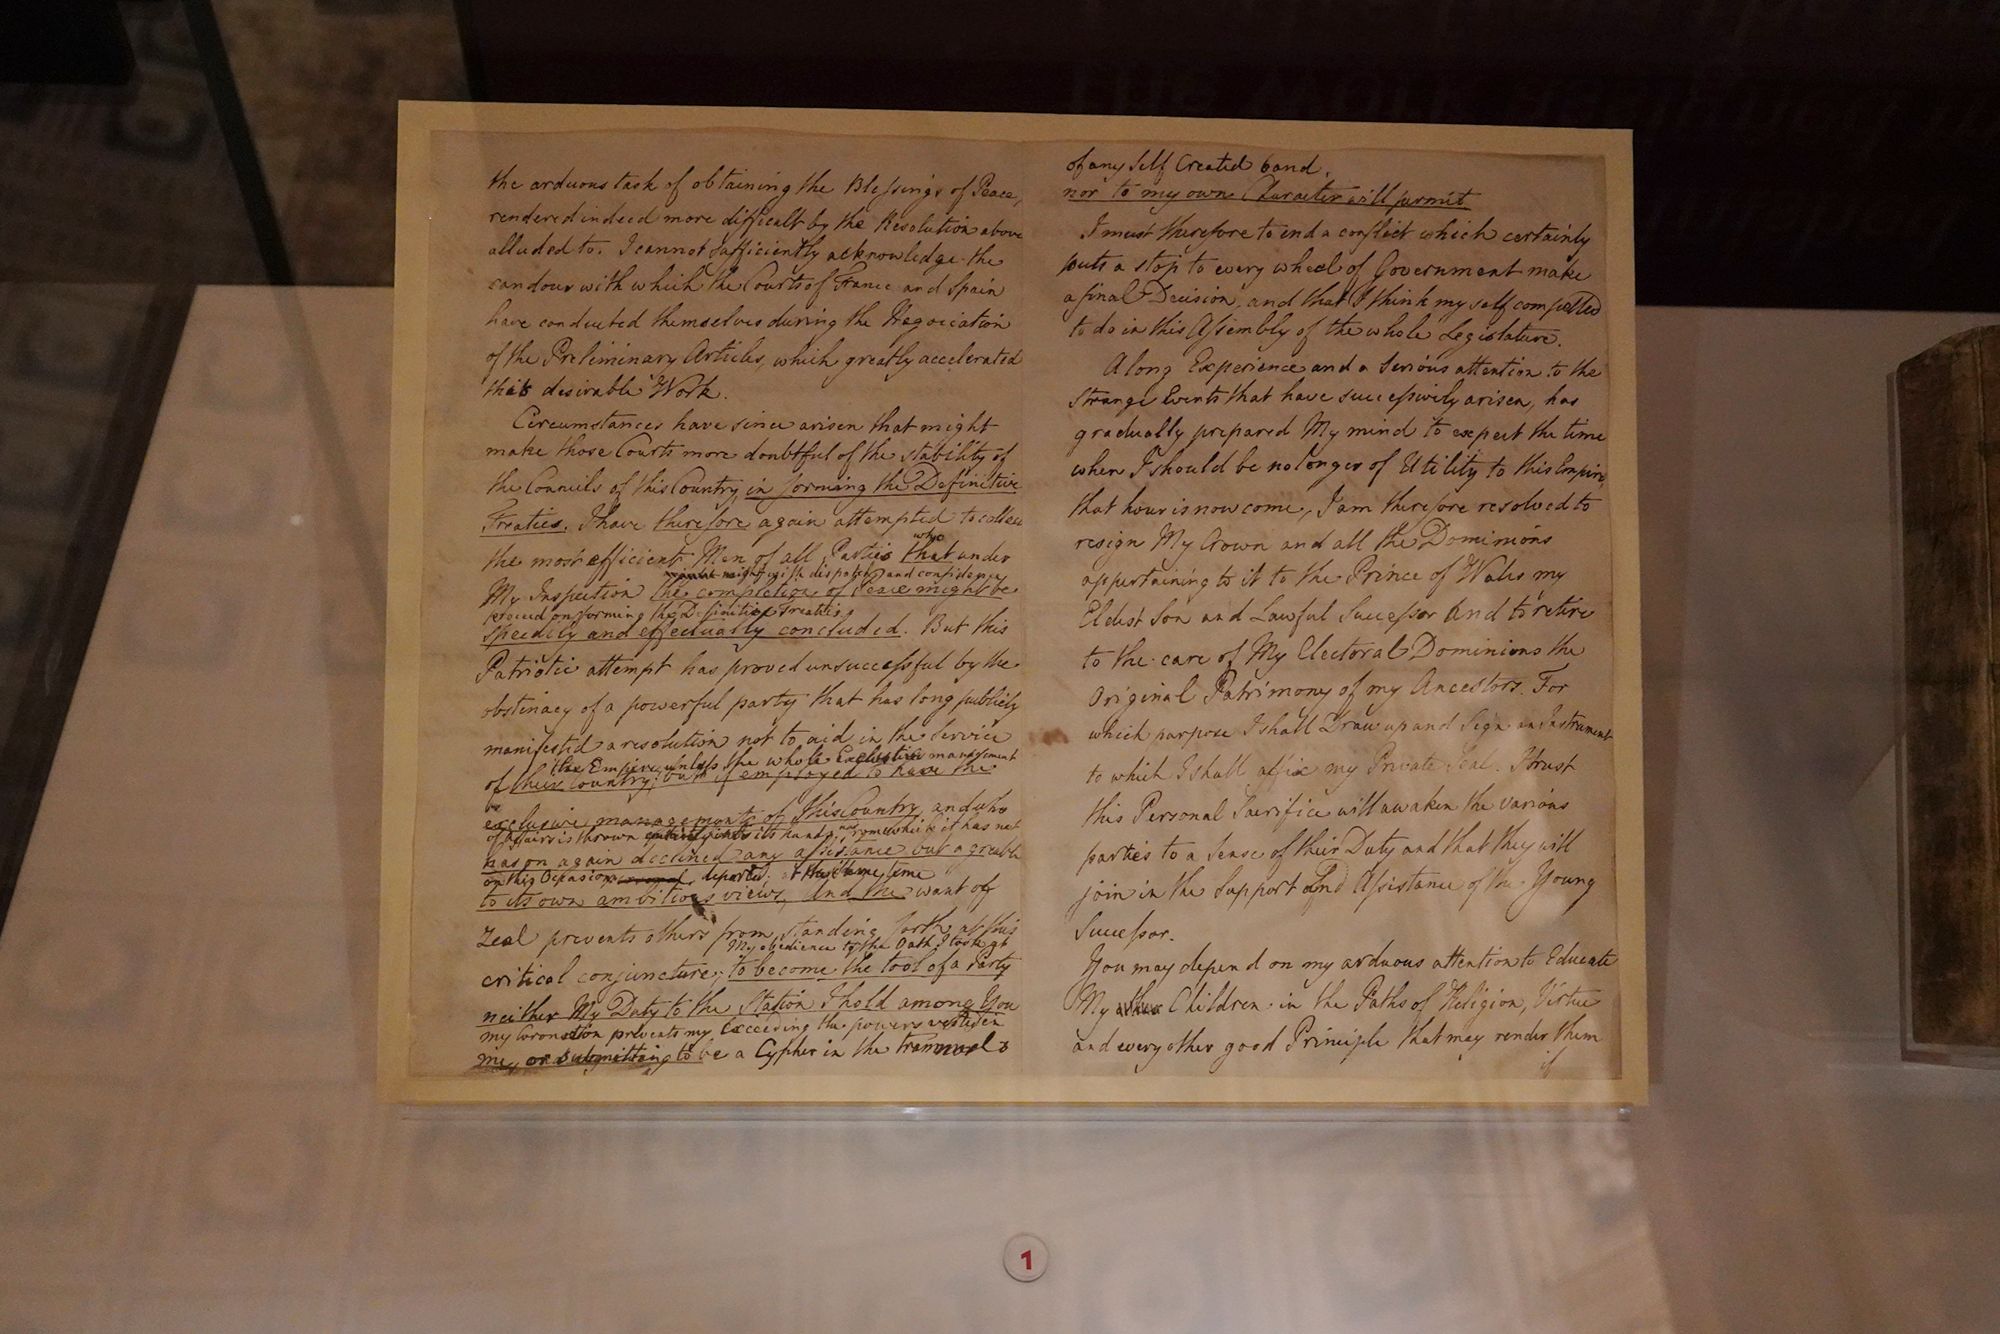 the arduous task of obtaining the Blessings of Peace,
rendered indeed more difficult by the Resolution above
alluded to. I cannot sufficiently acknowledge the
candour with which the Courts of France and Spain
have conducted themselves during the Negociation
of the Preliminary Articles, which greatly accelerated
that desirable Work.
Circumstances have since arisen that might
make those Courts more doubtful of the stability of
the Councils of this Country in forming the Definitive
Treaties. I have therefore again attempted to collect
who
the most efficient Men of all Parties that under
might with dispatch and confidence
My Inspection the completion of Peace might be
proceed on forming the Definitive Treaties
speedily and effectually concluded. But this
Patriotic attempt has proved unsuccessful by the
obstinacy of a powerful party that has long publicly
manifested a resolution not to aid in the Service
the Empire unless the whole Exclusive management
of their Country, but if employed to have the
exclusive management of this Country, and who
of Affairs is thrown into its hands, it has not
has on again declined any assistance but agreable
on this Occasion departed; at the same time
to its own ambitious views, And the want of
Zeal prevents others from standing forth at this
My obedience to the Oath I took at
critical conjuncture; to become the tool of a Party
neither My Duty to the Station I hold among You
my Coronation prevents my Exceeding the powers vested in
me, or submitting to be a Cypher in the trammels
of any self Created band.
nor to my own Character will permit
I must therefore to end a conflict which certainly
puts a stop to every wheel of Government make
a final Decision, and that I think myself compelled
to do in this Assembly of the whole Legislature.
A long Experience and a serious attention to the
Strange Events that have successively arisen, has
gradually prepared My mind to expect the time
when I should be no longer of Utility to this Empire,
that hour is now come, I am therefore resolved to
resign My Crown and all the Dominions
appertaining to it to the Prince of Wales my
Eldest Son and Lawful Successor And to retire
to the care of My Electoral Dominions the
Original Patrimony of my Ancestors. For
which purpose I shall Draw up and Sign an Instrument
to which I shall affix my Private Seal. I trust
this Personal Sacrifice will awaken the various
parties to a sense of their Duty and that they will
join in the Support And Assistance of the Young
Successor.
You may depend on my arduous attention to Educate
My Children in the Paths of Religion, Virtue
and every other good Principle that may render them
if
1